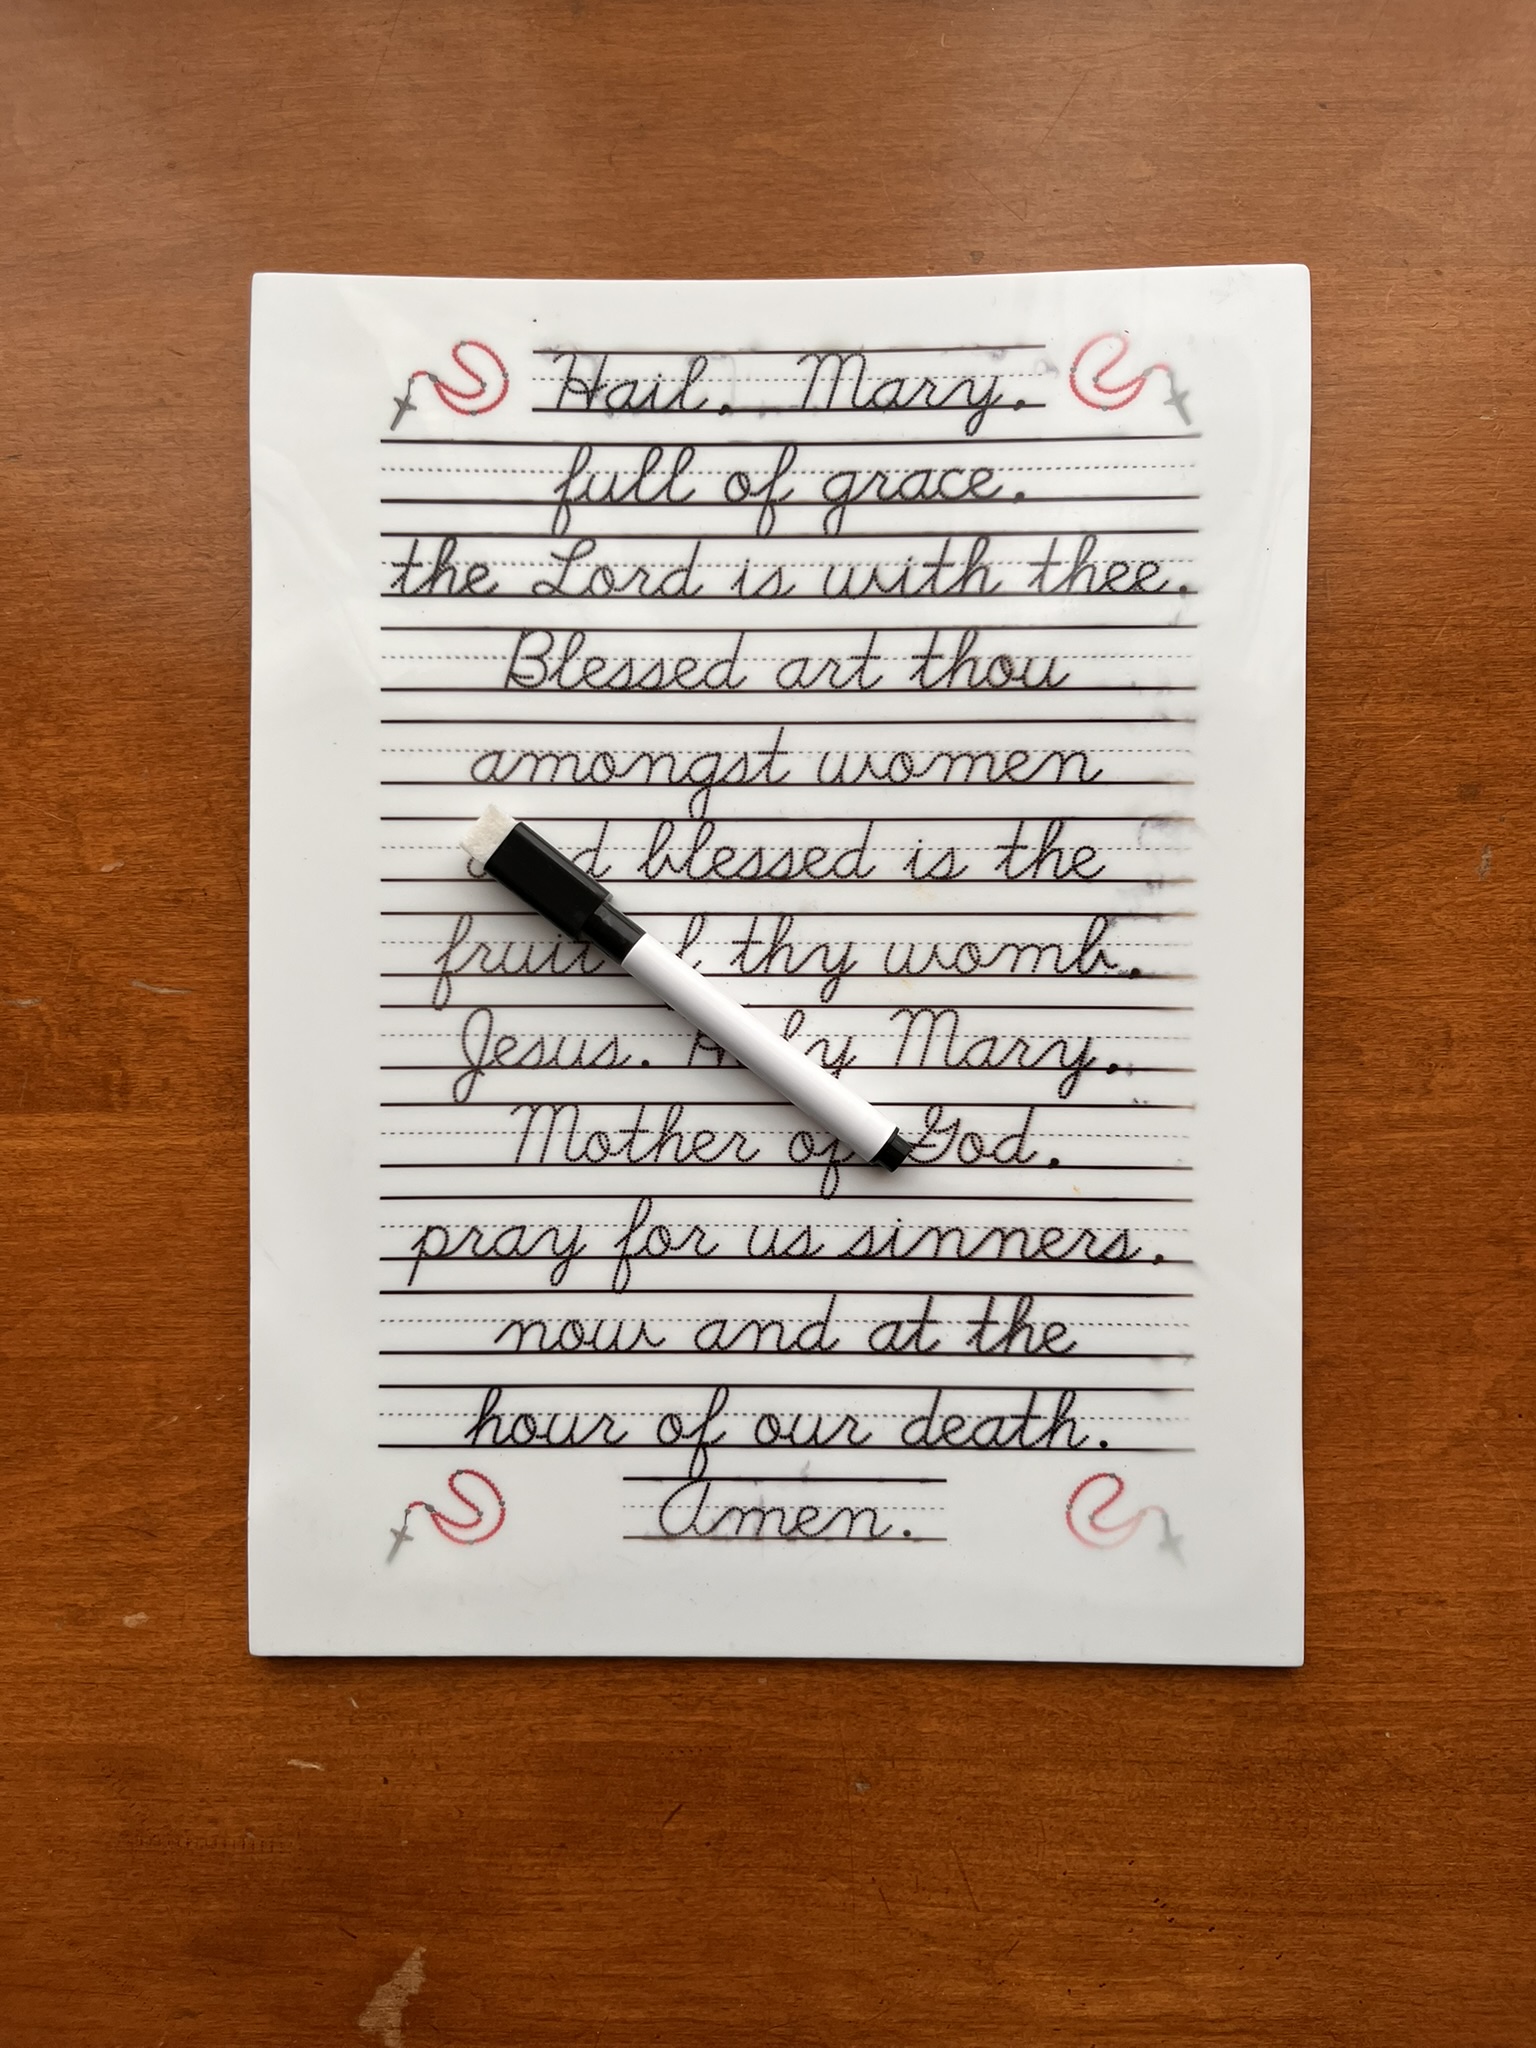 Hail, Mary,
full of grace,
the Lord is with thee.
Blessed art thou
amongst women
and blessed is the
fruit of thy womb,
Jesus. Holy Mary,
Mother of God,
pray for us sinners,
now and at the
hour of our death.
Amen.